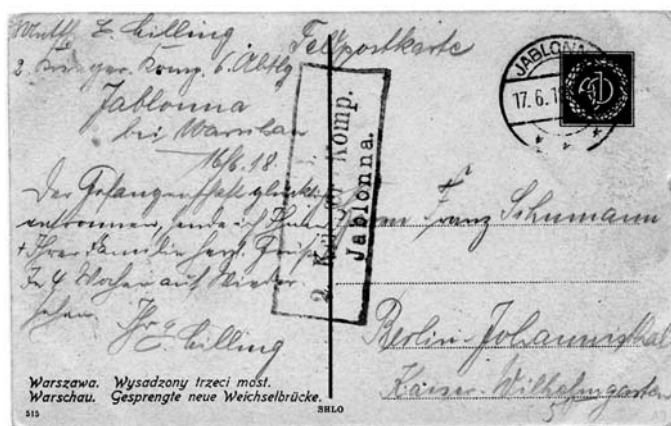 E. Cilling
Feldpostkarte
2. Komp. 6. Abtlg
Jablonna
bei Warschau
16/6.18.
Der Gefangenschaft glücklich
entronnen, sende ich Ihnen
+ Ihrer Familie herzl. Grüße
In 4 Wochen auf Wieder
sehen. Ihr
E. Cilling
JABLONNA
17.6.18
2. Komp.
Jablonna.
Herrn Franz Schumann
Berlin-Johannisthal
Kaiser-Wilhelmgarten
Warszawa. Wysadzony trzeci most.
Warschau. Gesprengte neue Weichselbrücke.
515
SHLO